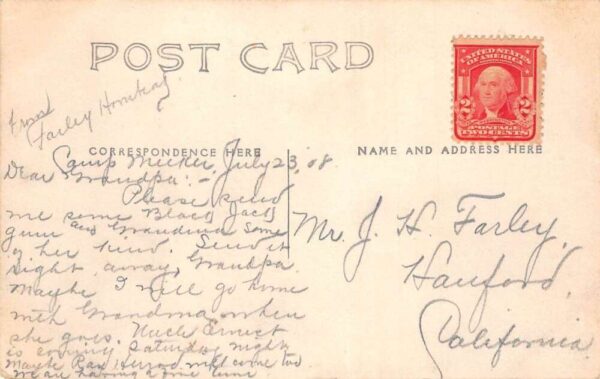 POST CARD
UNITED STATES
OF AMERICA
2 2
POSTAGE
TWO CENTS
From
Farley
CORRESPONDENCE HERE
NAME AND ADDRESS HERE
Camp Meeker, July 23, 08
Dear Grandpa:-
Please send
me some Black Jack
gum and Grandma some
of her kind. Send it
right away, Grandpa.
Maybe I will go home
with Grandma when
she goes. Uncle Ernest
is coming Saturday night
Maybe Herrod will come too
We are having a fine time
Mr. J. H. Farley,
Hanford,
California